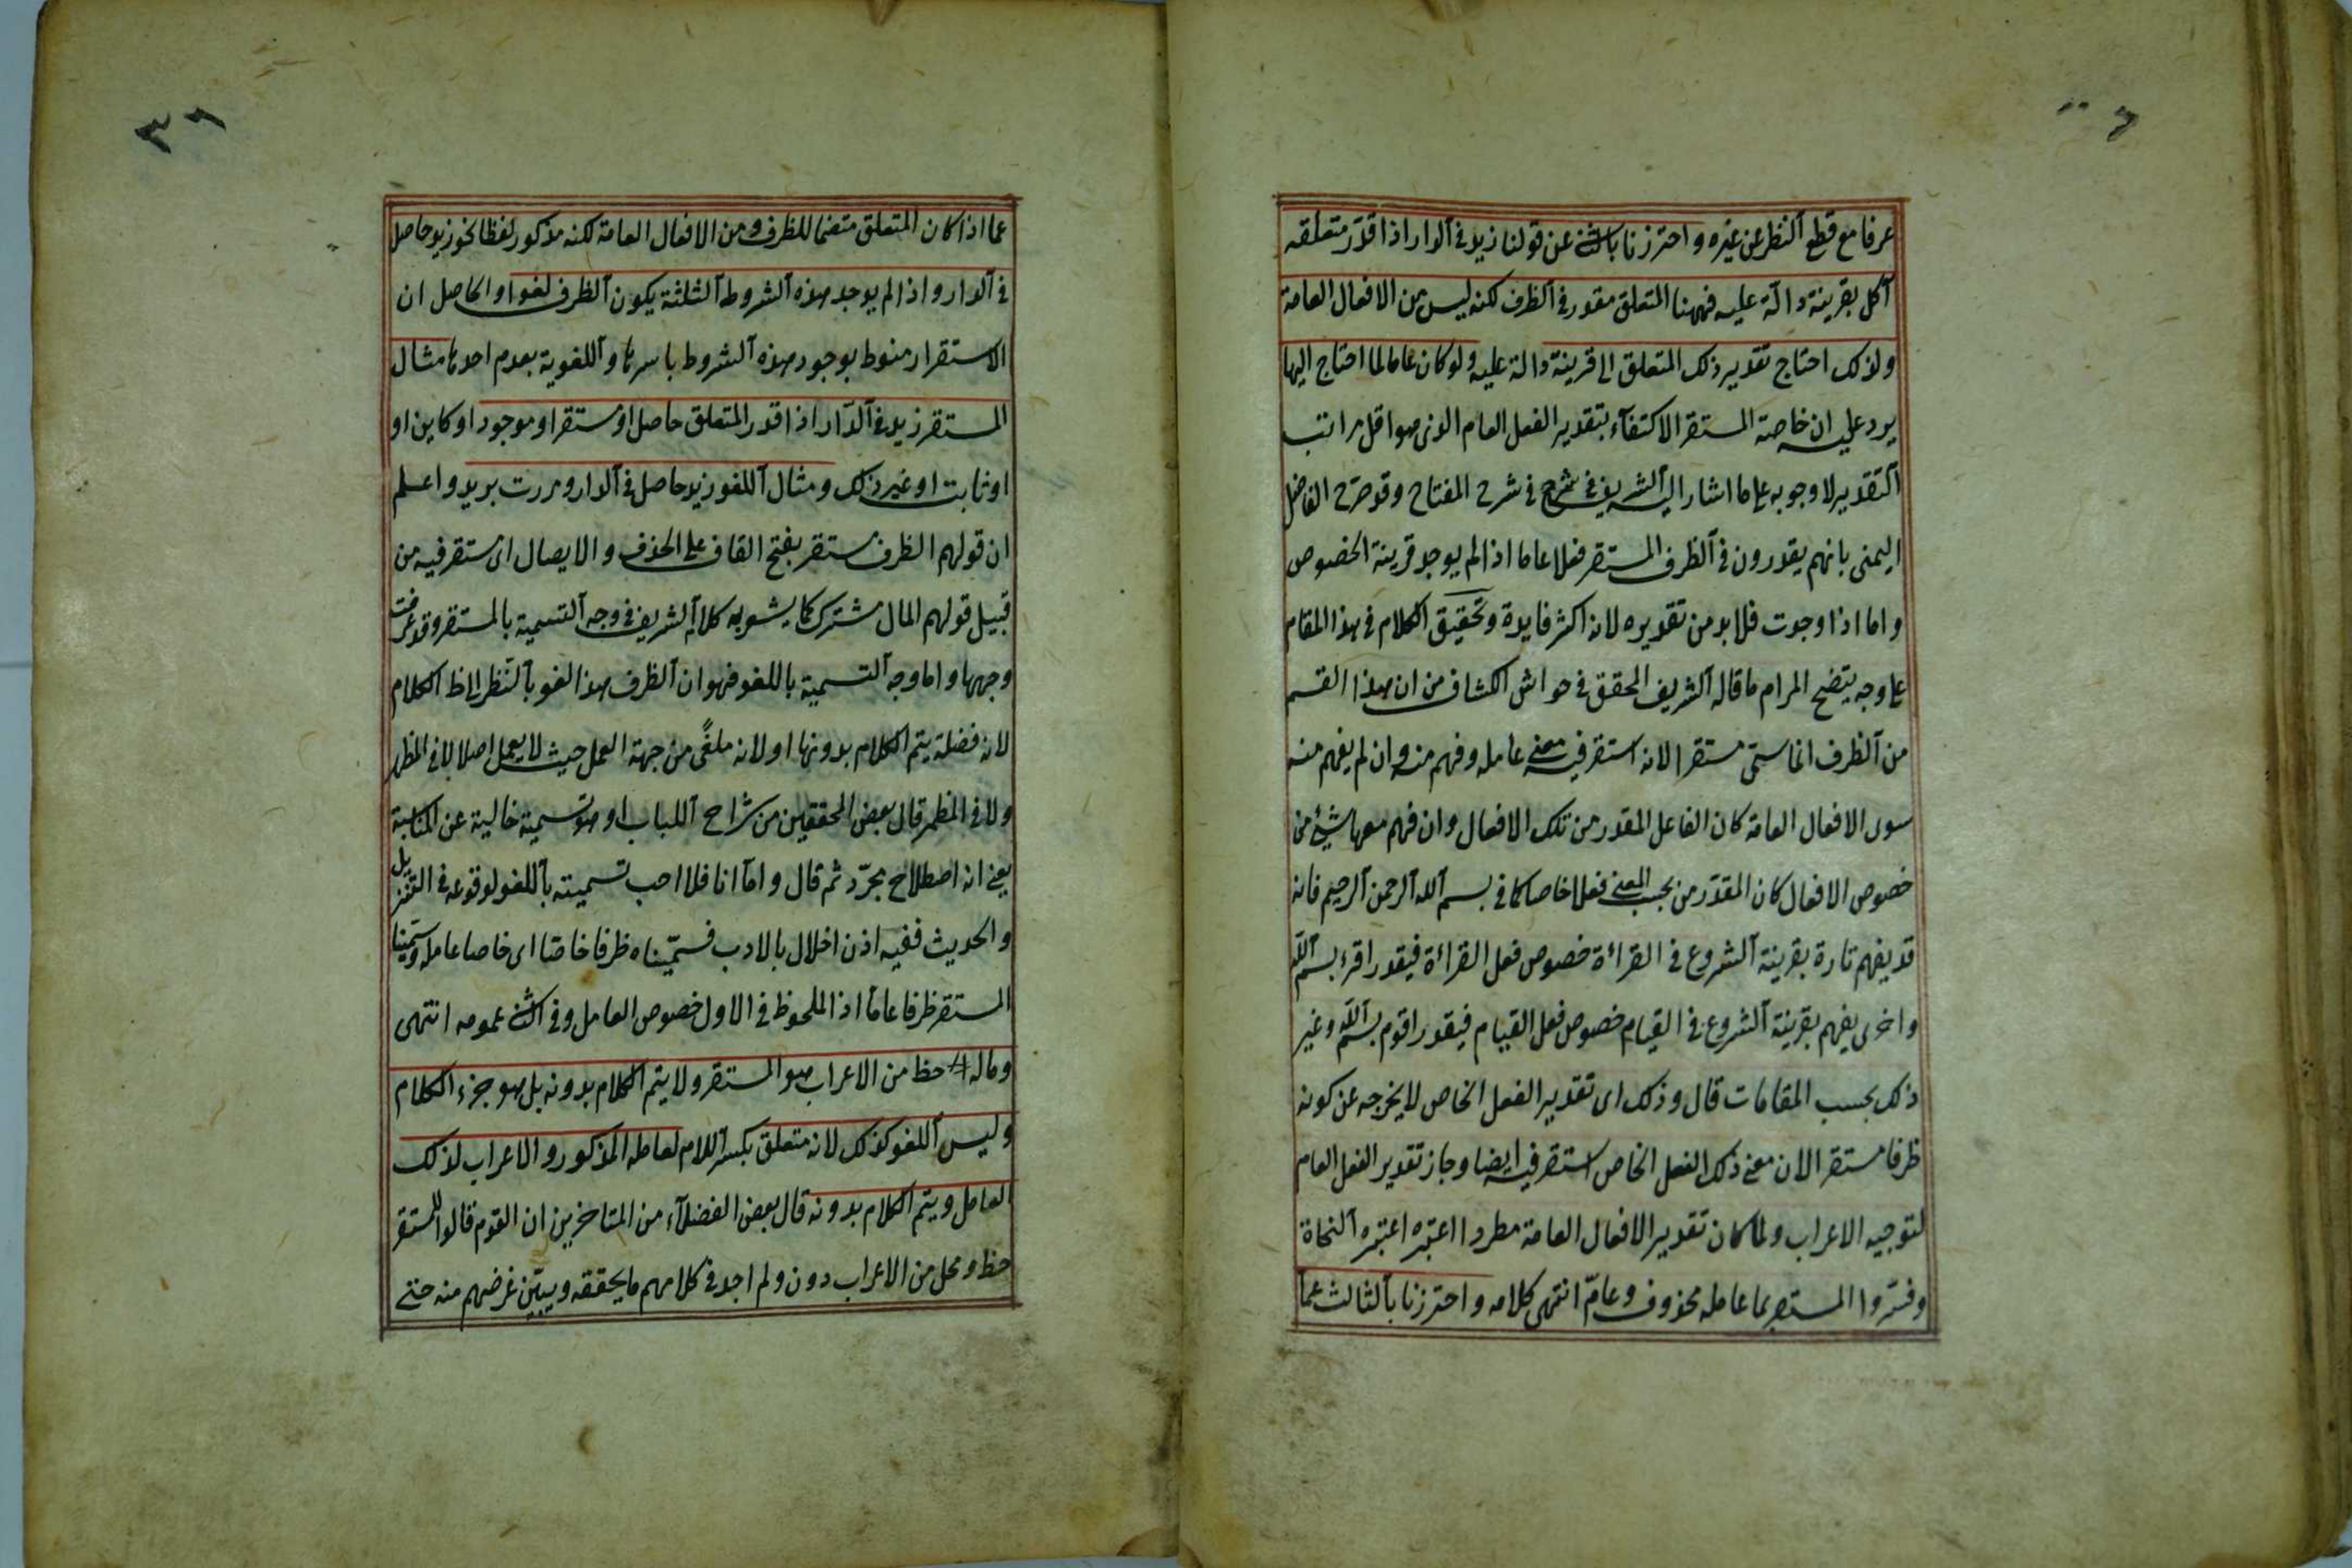 عرفا مع قطع النظر عن غيره واحترزنا بالثانى عن قولنا زيد فى الدار اذا قدّر متعلقه
آكل بقرينة دالّة عليه فههنا المتعلق مقدر فى الظرف لكنه ليس من الافعال العامة
ولذلك احتاج تقدير ذلك المتعلق الى قرينة دالة عليه ولو كان عاما لما احتاج اليها
يرد عليه ان خاصة المستقر الاكتفآء بتقدير الفعل العام الذى هو اقل مراتب
التقدير لا وجوبه على ما اشار اليه الشريف فى شرح فى شرح المفتاح وقد صرّح الفاضل
اليمنى بانهم يقدرون فى الظرف المستقر فعلا عاما اذا لم يوجد قرينة الخصوص
واما اذا وجدت فلا بد من تقديره لانه اكثر فايدة وتحقيق الكلام فى هذا المقام
على وجه يتضح المرام ما قاله الشريف المحقق فى حواشى الكشاف من ان هذا القسم
من الظرف انما سمّى مستقرا لانه استقر فيه معنى عامله وفهم منه وان لم يفهم منه
سوى الافعال العامة كان الفاعل المقدر من تلك الافعال وان فهم معها شيئ من
خصوص الافعال كان المقدّر من بحسب المعنى فعلا خاصا كما فى بسم الله الرحمن الرحيم فانه
قد يفهم تارة بقرينة الشروع فى القراءة خصوص فعل القراءة فيقدر اقرء بسم الله
واخرى يفهم بقرينة الشروع فى القيام خصوص فعل القيام فيقدر اقوم بسم الله وغير
ذلك بحسب المقامات قال وذلك اى تقدير الفعل الخاص لا يخرجه عن كونه
ظرفا مستقرا لان معنى ذلك الفعل الخاص استقر فيه ايضا وجاز تقدير الفعل العام
لتوجيه الاعراب ولما كان تقدير الافعال العامة مطردا اعتبره اعتبره النحاة
وفسّروا المستقر بما عامله محذوف وعامّ انتهى كلامه واحترزنا بالثالث عما
٣٦
عما اذا كان المتعلق متضمنا للظرف ومن الافعال العامة لكنه مذكور لفظا نحو زيد حاصل
فى الدار واذا لم يوجد هذه الشروط الثلثة يكون الظرف لغوا والحاصل ان
الاستقرار منوط بوجود هذه الشروط باسرها واللغوية بعدم احدها مثال
المستقر زيد فى الدّار اذا قدر المتعلق حاصل او مستقر او موجود او كاين او
او ثابت او غير ذلك ومثال اللغو زيد حاصل فى الدار ومررت بزيد واعلم
ان قولهم الظرف مستقر بفتح القاف على الحذف والايصال اى مستقر فيه من
قبيل قولهم المال مشترك كما يشعر به كلام الشريف فى وجه التسمية بالمستقر وقد عرفت
وجهها واما وجه التسمية باللغو فهو ان الظرف هذا لغو بالنظر الى الكلام
لانه فضلة يتم الكلام بدونها او لانه ملغًى من جهة العمل حيث لا يعمل اصلا لا فى المظهر
ولا فى المظمر قال بعض المحققين من شراح اللباب او هو تسمية خالية عن المناسبة
يعنى انه اصطلاح مجرّد ثم قال وامآ انا فلا احب تسميته باللغو لوقوعه فى التنزيل
والحديث ففيه اذن اخلال بالادب فسمّيناه ظرفا خاصّا اى خاصا عامله وسمّينا
المستقر ظرفا عامّا اذ الملحوظ فى الاول خصوص العامل وفى الثانى عمومه انتهى
وماله حظ من الاعراب هو المستقر ولا يتم الكلام بدونه بل هو جزء الكلام
وليس اللغو كذلك لانه متعلق بكسر اللام لعامله المذكور والاعراب لذلك
العامل ويتم الكلام بدونه قال بعض الفضلآء من المتاخرين ان القوم قالوا للمستقر
حظ ومحل من الاعراب دون ولم اجد فى كلامهم ما يحققه ويبيّن غرضهم منه حتى